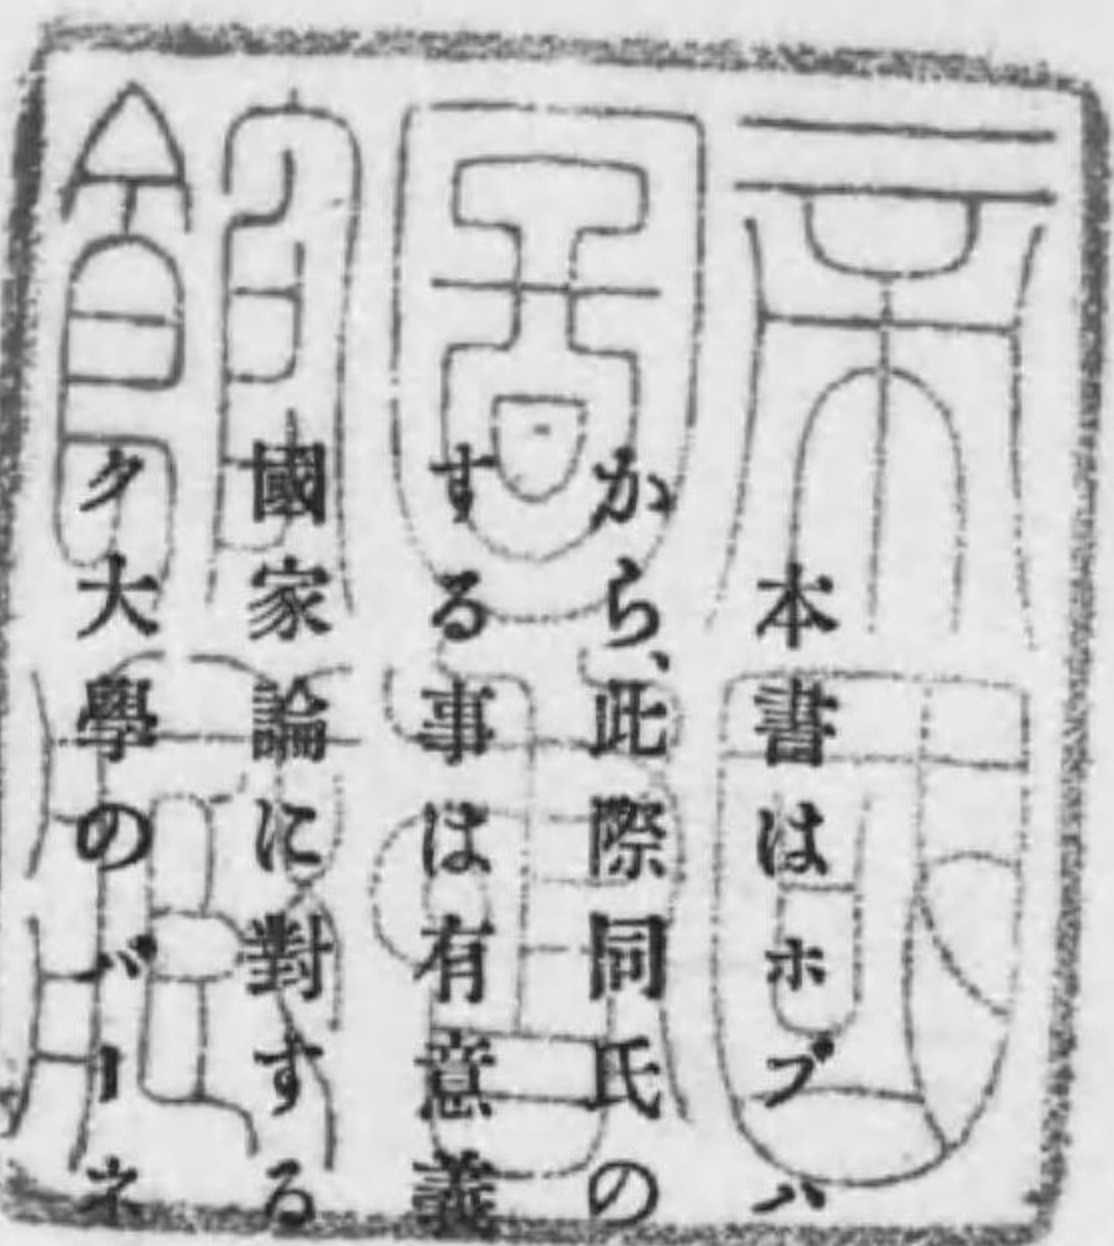 帝國
圖書
館藏
本書はホブハ
から、此際同氏の
する事は有意義
國家論に對する
ク大學のバーネ